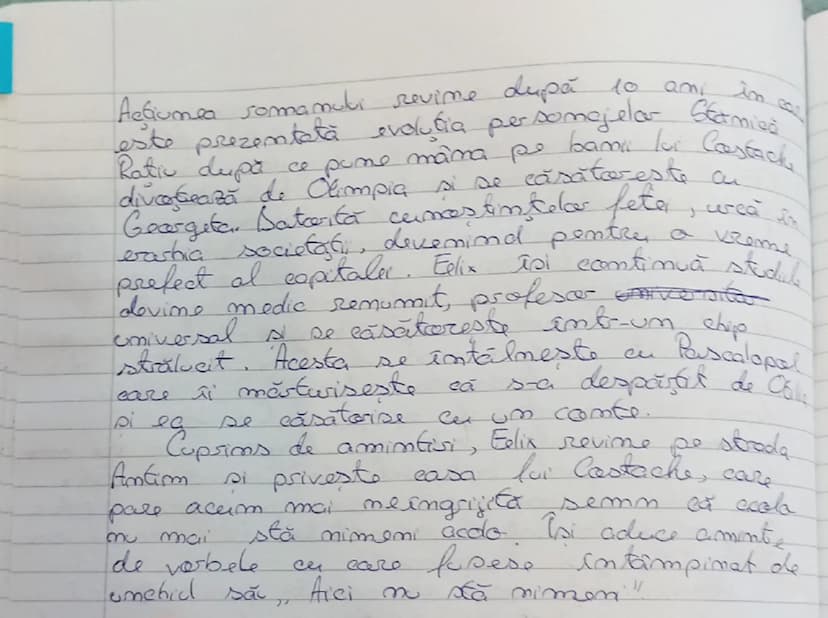 Acțiunea romanului revine după 10 ani în ca
este prezentată evoluția personajelor Stănică
Rațiu după ce pune mâna pe banii lui Costache
divorțează de Olimpia și se căsătorește cu
Georgeta. Datorită cunoștințelor fetei, urcă în
erarhia societății, devenind pentru o vreme
prefect al capitalei. Felix își continuă studiile
devine medic renumit, profesor ~~universitar~~
universal și se căsătorește într-un chip
strălucit. Acesta se întâlnește cu Pascalopol
care îi mărturisește că s-a despărțit de Oti
și ea se căsătorise cu un conte.
Cuprins de amintiri, Felix revine pe strada
Antim și privește casa lui Costache, care
pare acum mai neîngrijită semn că acola
nu mai stă nimeni acolo. Își aduce aminte
de vorbele cu care fusese întâmpinat de
unchiul său „Aici nu stă nimeni"